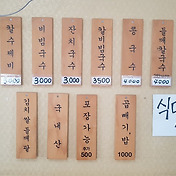 칼수제비
비빔국수
3000
잔치국수
3,000
칼비빔국수
3500
콩국수
4000
들깨칼국수
4000
김치쌀들깨팥
국내산
포장가능
추가
500
곱빼기,밥
1000